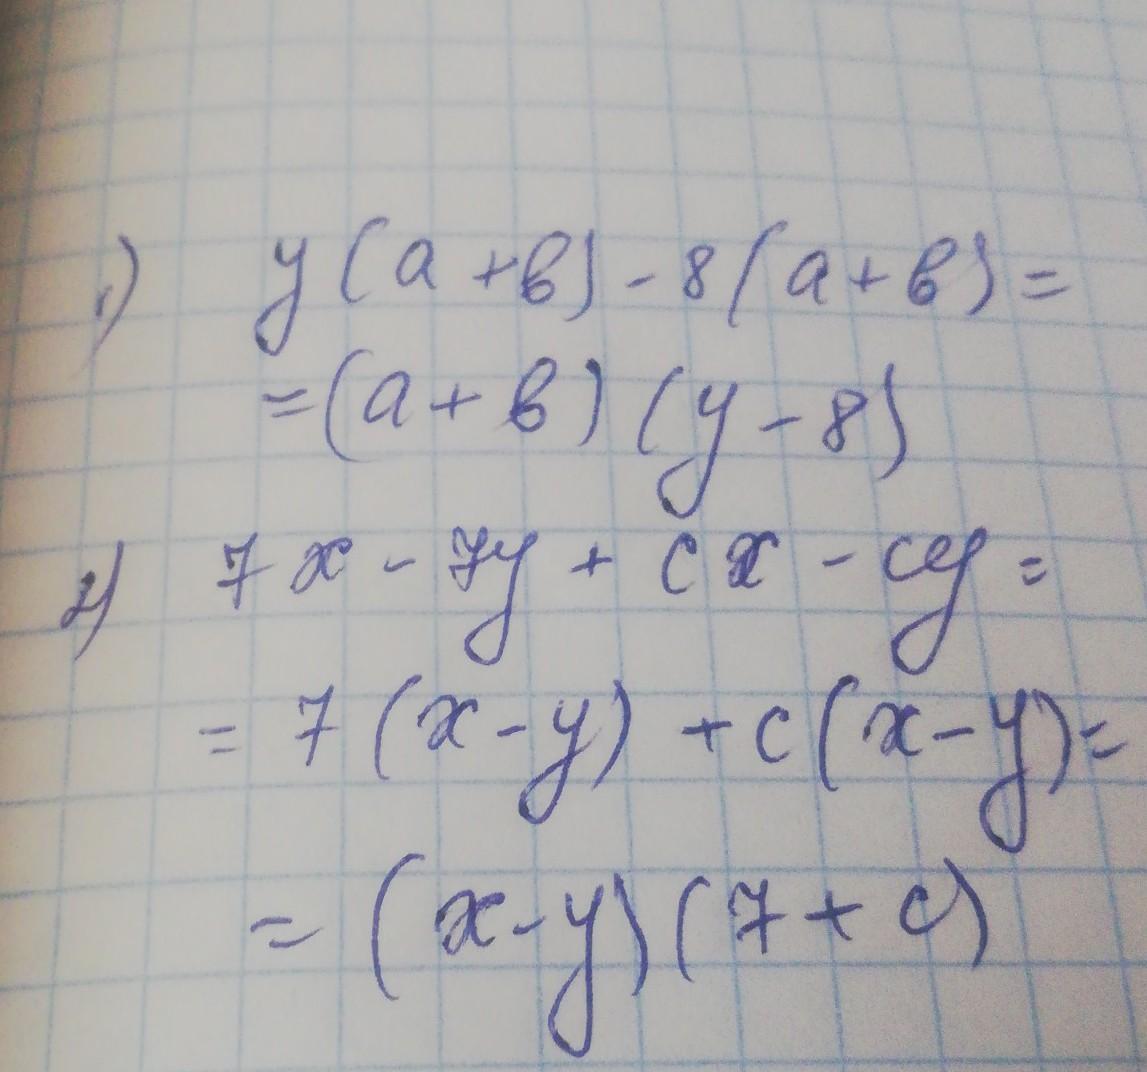 1) y(a+b)-8(a+b)=
=(a+b)(y-8)
2) 7x-7y+cx-cy=
=7(x-y)+c(x-y)=
=(x-y)(7+c)